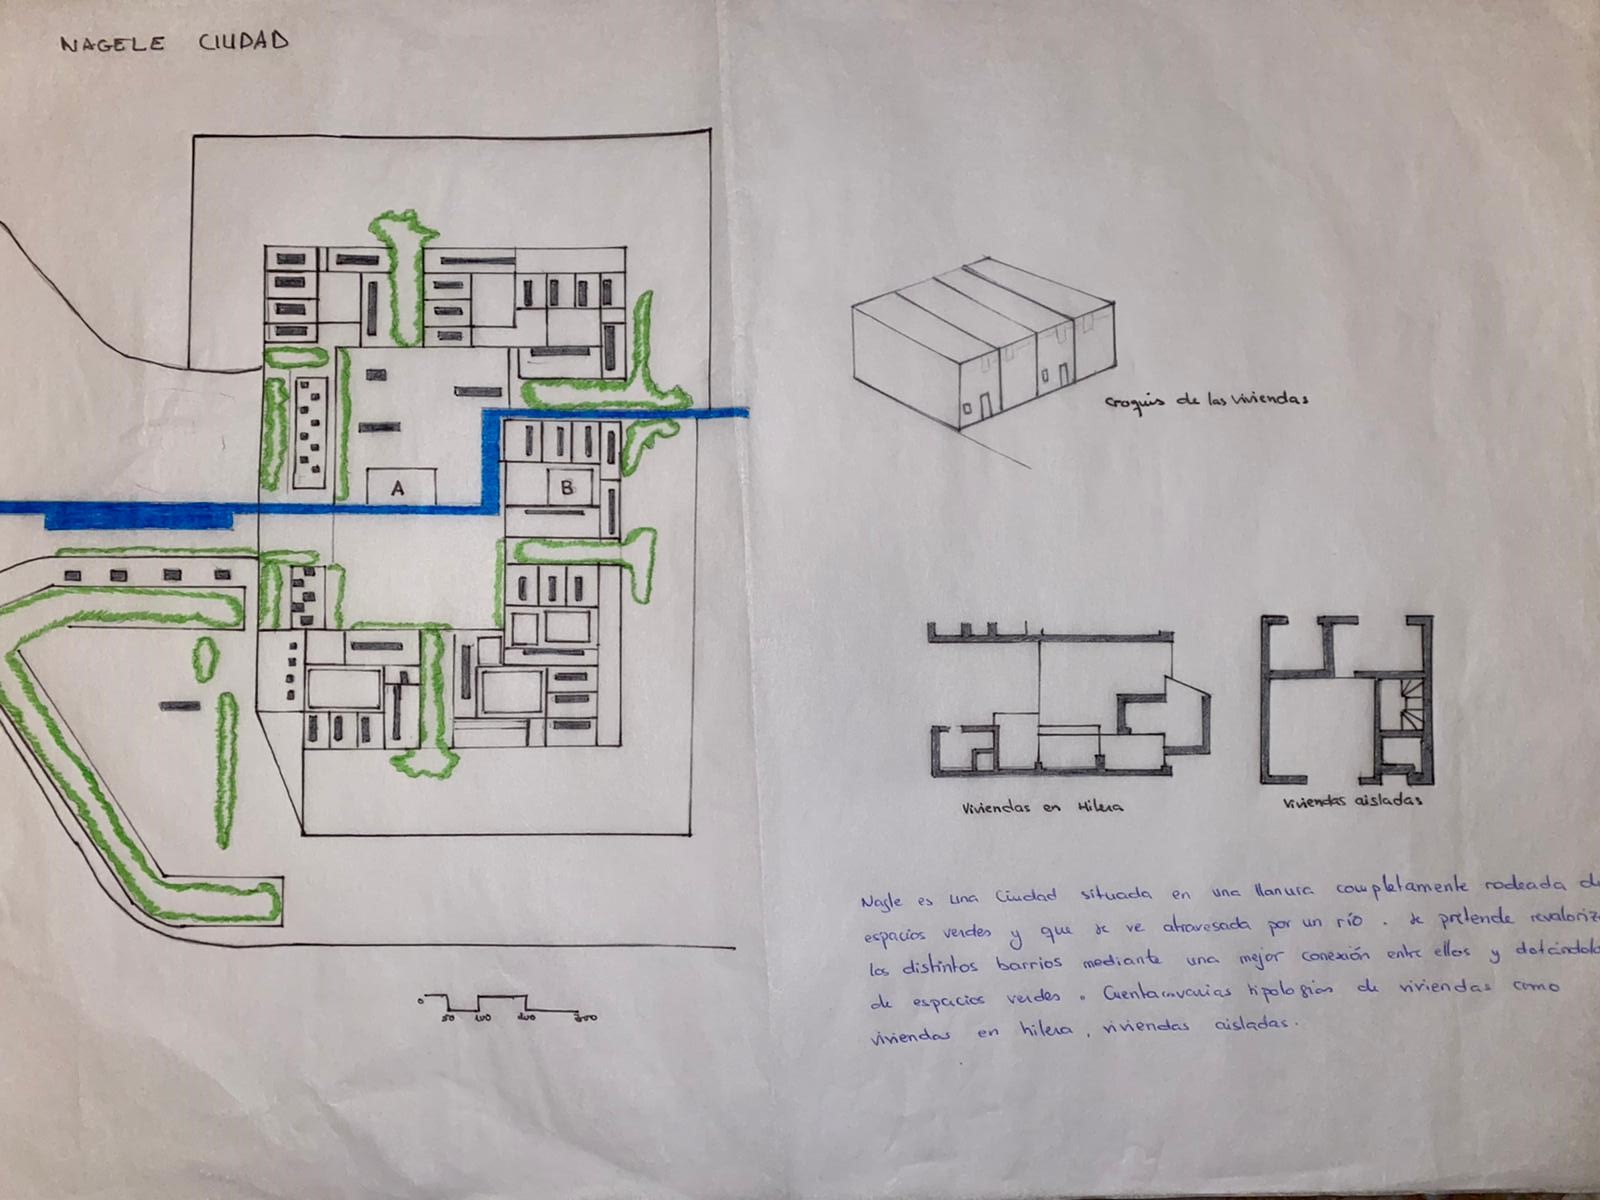 NAGELE CIUDAD
A
B
croquis de las viviendas
viviendas en Hilera
viviendas aisladas
Nagle es una Ciudad situada en una llanura completamente rodeada de
espacios verdes y que se ve atravesada por un río. se pretende revaloriz
los distintos barrios mediante una mejor conexión entre ellos y dotándolo
de espacios verdes. Cuenta con varias tipologías de viviendas como
viviendas en hilera, viviendas aisladas.
0 50 100 200